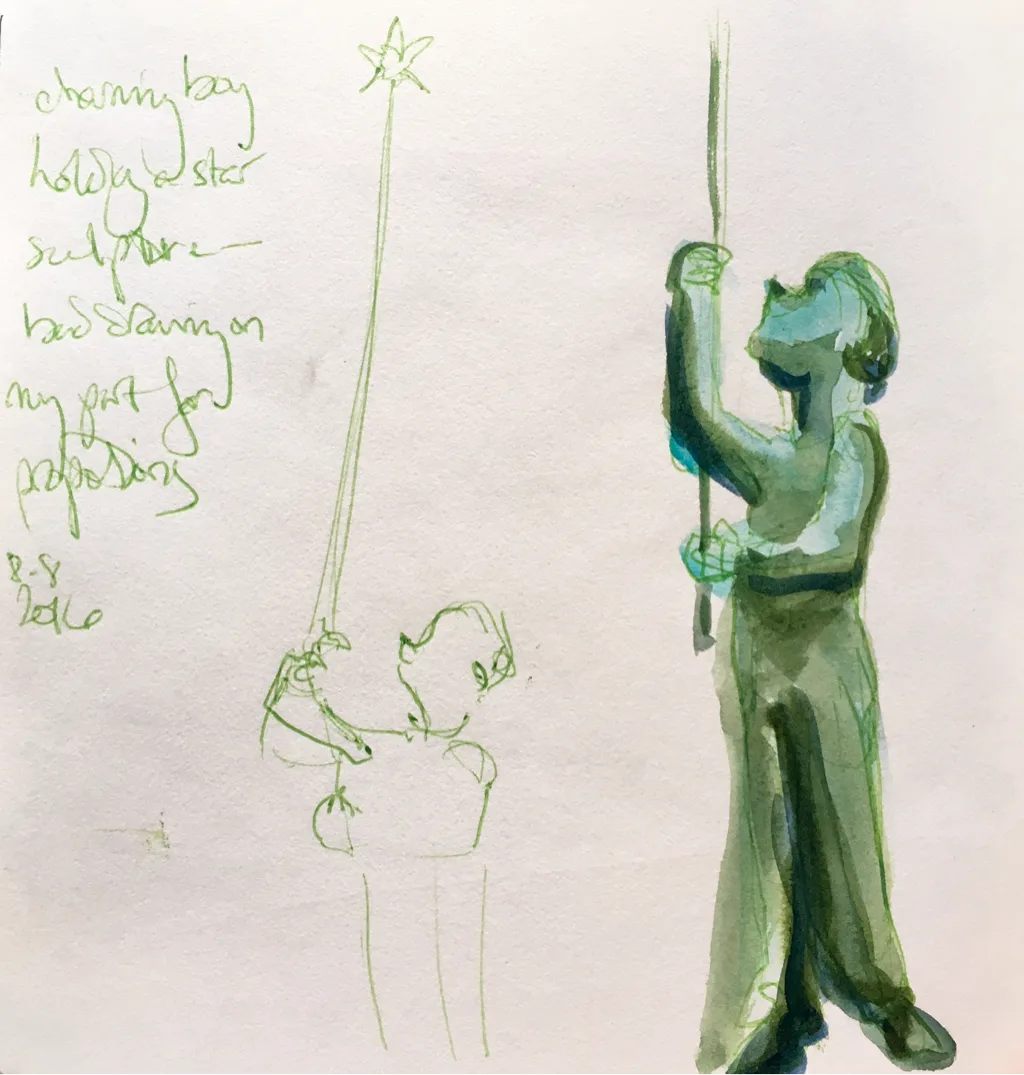 charming boy
holding a star
sculpture –
bad drawing on
my part for
proportions
8-8
2016